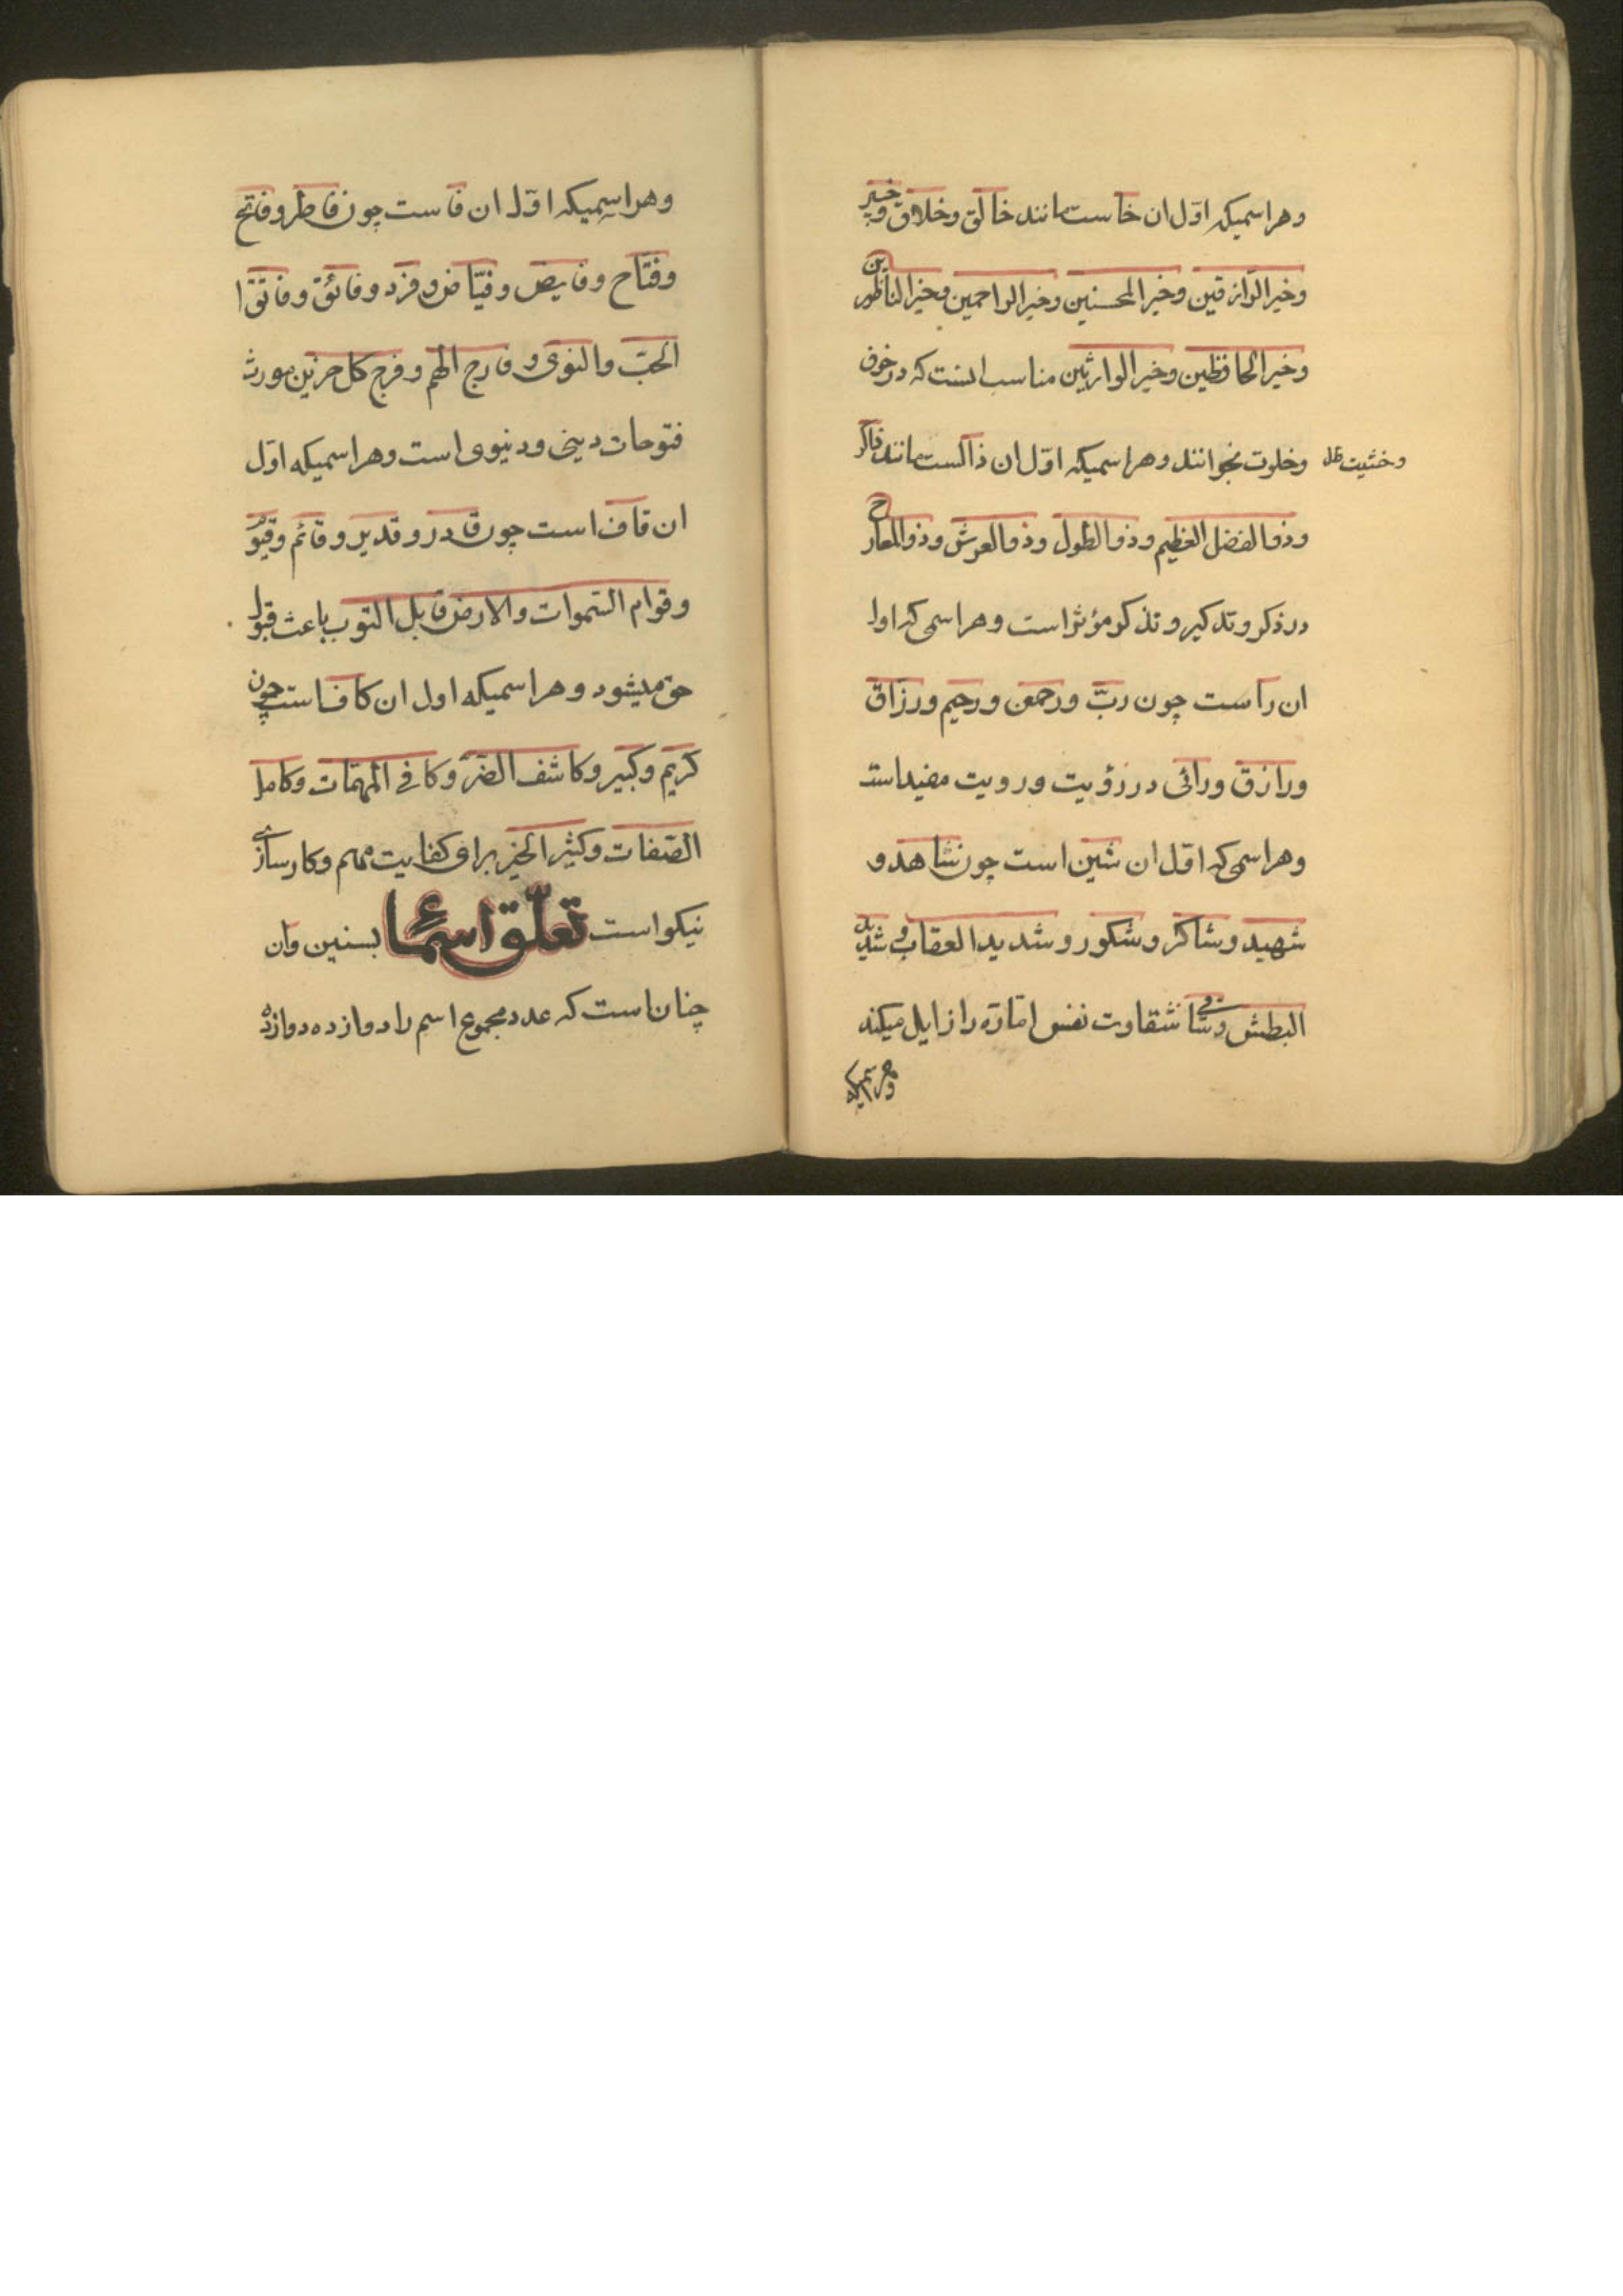 وهر اسمیکه اوّل ان خا ست مانند خالق وخلاق وخبیر
وخیر الرّازقین وخیر المحسنین وخیر الراحمین وخیر الناظرین
وخیر الحافظین وخیر الوارثین مناسب انست که در خوف
وخشیت ظ
وخلوت بخوانند وهر اسمیکه اوّل ان ذالست مانند ذاکر
وذو الفضل العظیم وذو الطول وذو العرش وذو المعارج
در ذکر و تذکیر و تذکر مؤثر است وهر اسمی که اول
ان راست چون ربّ ورحمن ورحیم ورزاق
ورازق ورائی در رؤیت ورویت مفید است
وهر اسمی که اوّل ان شین است چون شاهد و
شهید وشاکر وشکور وشدید العقاب وشدید
البطش وشافی شقاوت نفس امّاره را زایل میکند
وهر اسمیکه
وهر اسمیکه اوّل ان فاست چون فاطر وفاتح
وفتّاح وفایض وفیّاض وفرد وفائق وفاتق ا
الحبّ والنوی وفارج الهم وفرج کل حزین مورث
فتوحات دینی ودنیوی است وهر اسمیکه اوّل
ان قاف است چون قادر وقدیر وقائم وقیّو
وقوام السّموات والارض قابل التوب باعث قبول
حق میشود وهر اسمیکه اول ان کاف است چون
کریم وکبیر وکاشف الضرّ وکافی المهمّات وکامل
الصّفات وکثیر الخیر برای کفایت مهم وکارسازی
نیکو است تعلّق اسماء بسنین وان
چنان است که عدد مجموع اسم را دوازده دوازده